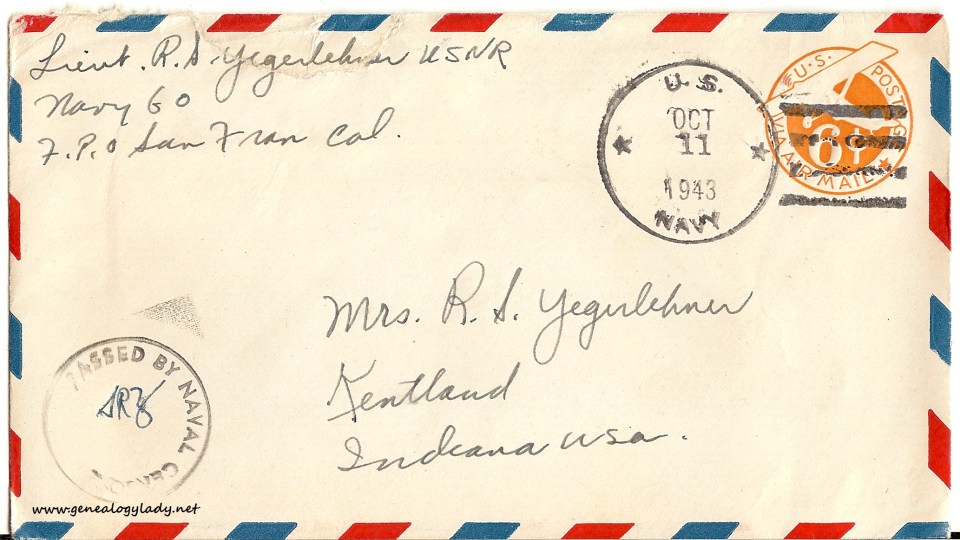 Lieut. R.S. Yegerlehner USNR
Navy 60
F.P.O San Fran Cal.
U.S.
OCT
11
1943
NAVY
U.S. POSTAGE
6¢
VIA AIR MAIL
Mrs. R. S. Yegerlehner
Kentland
Indiana USA.
PASSED BY NAVAL CENSOR
www.genealogylady.net